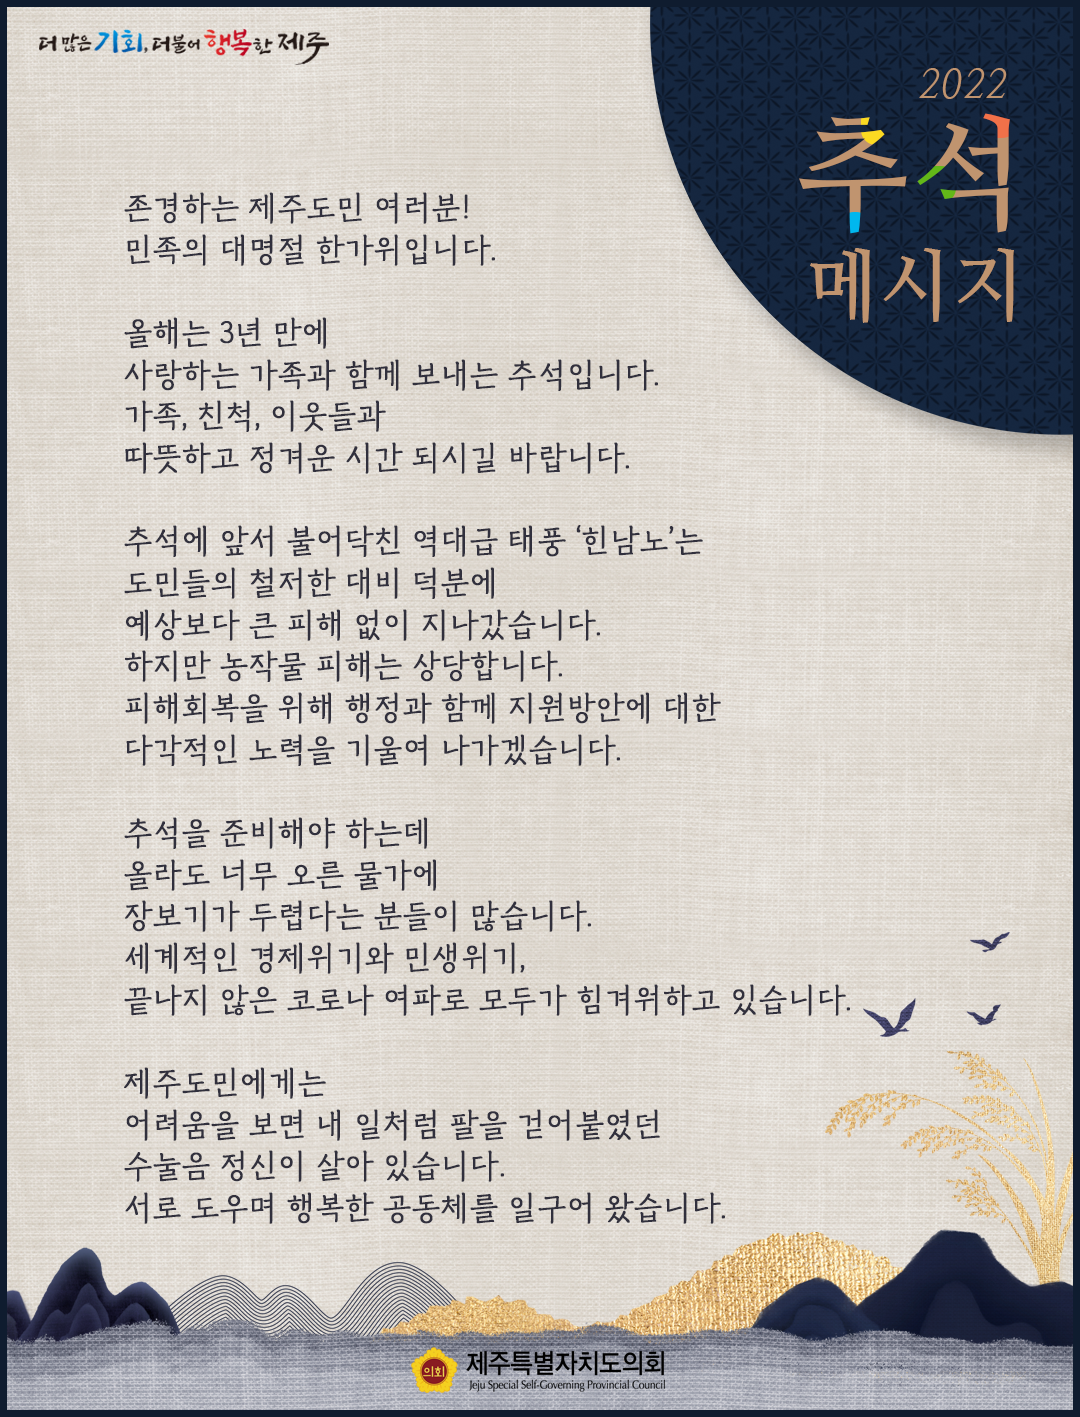 더 많은 기회, 더불어 행복한 제주
2022
추석
메시지
존경하는 제주도민 여러분!
민족의 대명절 한가위입니다.
올해는 3년 만에
사랑하는 가족과 함께 보내는 추석입니다.
가족, 친척, 이웃들과
따뜻하고 정겨운 시간 되시길 바랍니다.
추석에 앞서 불어닥친 역대급 태풍 ‘힌남노’는
도민들의 철저한 대비 덕분에
예상보다 큰 피해 없이 지나갔습니다.
하지만 농작물 피해는 상당합니다.
피해회복을 위해 행정과 함께 지원방안에 대한
다각적인 노력을 기울여 나가겠습니다.
추석을 준비해야 하는데
올라도 너무 오른 물가에
장보기가 두렵다는 분들이 많습니다.
세계적인 경제위기와 민생위기,
끝나지 않은 코로나 여파로 모두가 힘겨워하고 있습니다.
제주도민에게는
어려움을 보면 내 일처럼 팔을 걷어붙였던
수눌음 정신이 살아 있습니다.
서로 도우며 행복한 공동체를 일구어 왔습니다.
의회
제주특별자치도의회
Jeju Special Self-Governing Provincial Council